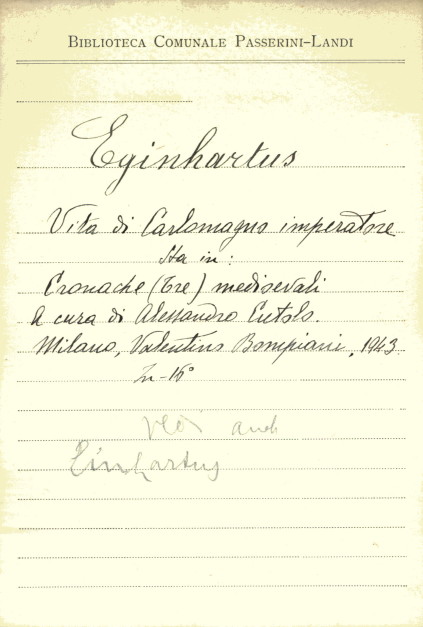 BIBLIOTECA COMUNALE PASSERINI-LANDI
Eginhartus
Vita di Carlomagno imperatore
Sta in:
Cronache (Tre) medioevali
A cura di Alessandro Cutolo.
Milano, Valentino Bompiani, 1943
In-16°
Vedi anche
Einhartus